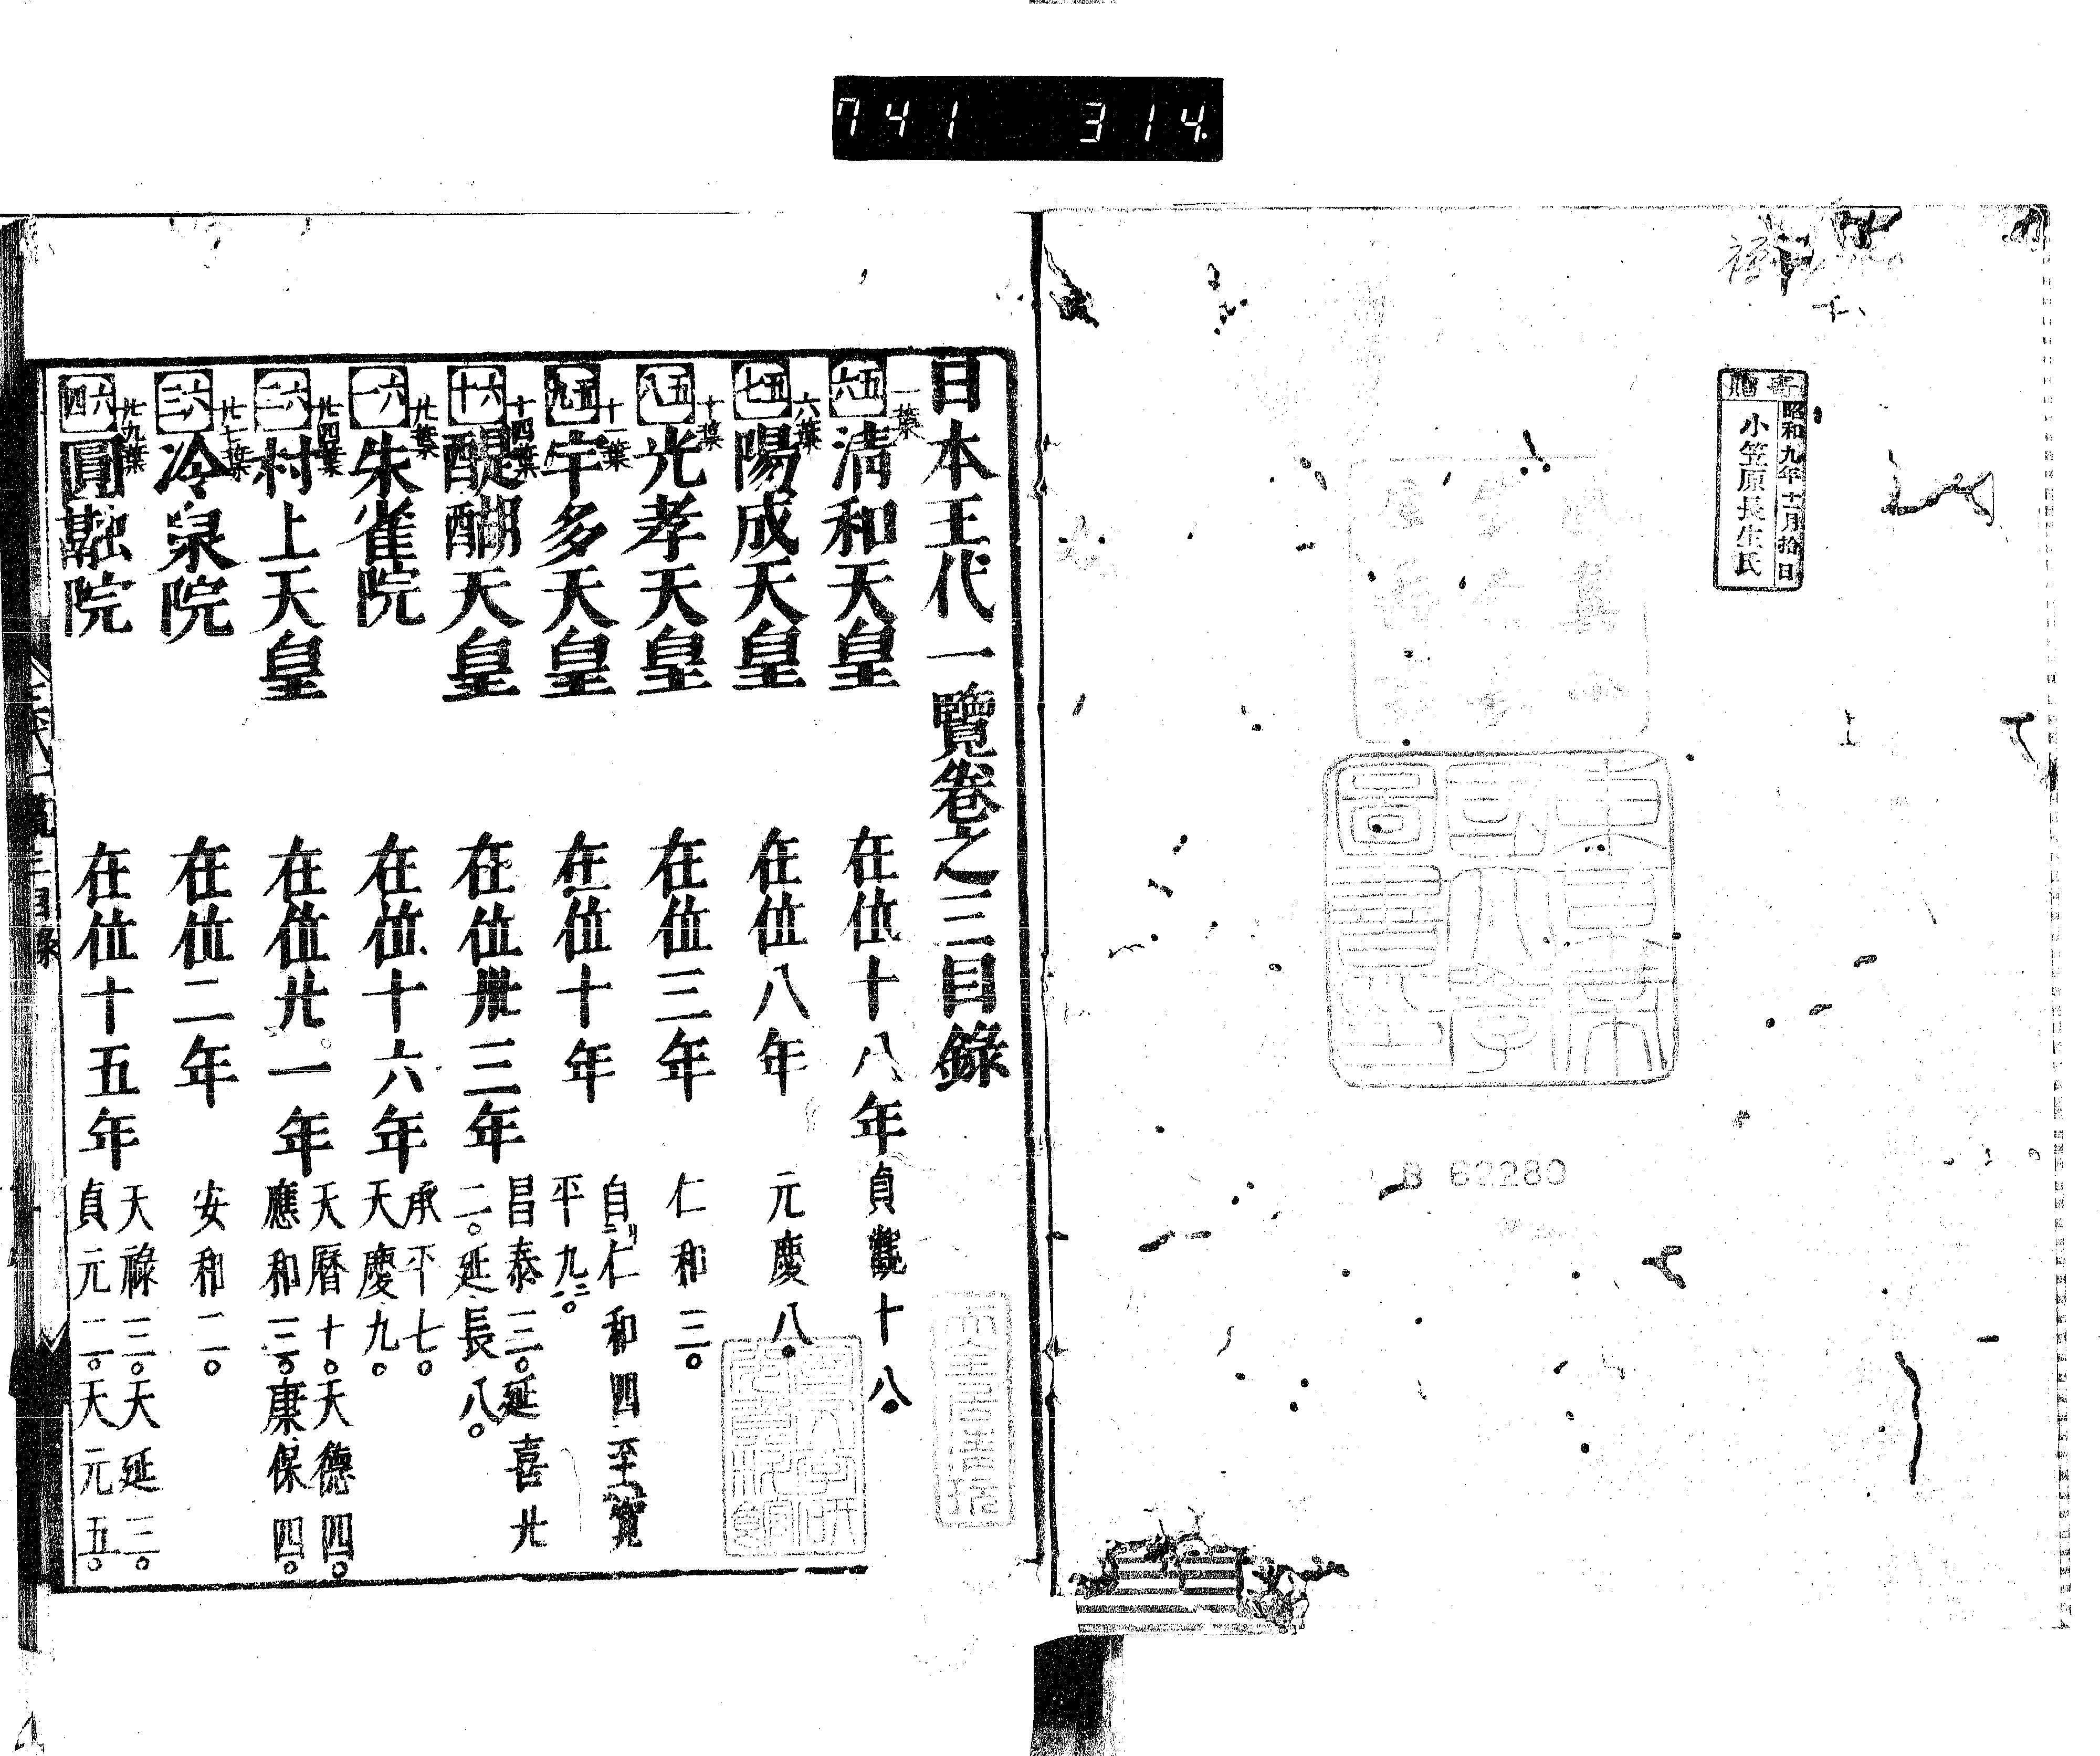 741 314
寄贈
昭和九年十二月拾日
小笠原長生氏
東京帝
國大學
圖書印
B 62280
日本王代一覽卷之三目錄
五六 一葉 清和天皇 在位十八年 貞觀十八
五七 六葉 陽成天皇 在位八年 元慶八
五八 十葉 光孝天皇 在位三年 仁和三
五九 十一葉 宇多天皇 在位十年 自仁和四至寬
平九
六十 十四葉 醍醐天皇 在位卅三年 昌泰三延喜廿
二延長八
六一 廿葉 朱雀院 在位十六年 承平七
天慶九
六二 廿四葉 村上天皇 在位廿一年 天曆十天德四
應和三康保四
六三 廿七葉 冷泉院 在位二年 安和二
六四 廿九葉 圓融院 在位十五年 天祿三天延三
貞元二天元五